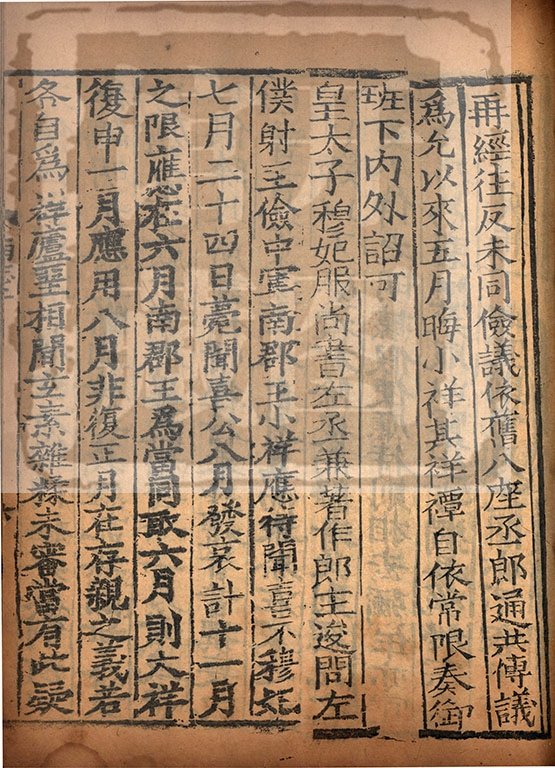 再經往反未同儉議依舊八座丞郎通共博議
為允以來五月晦小祥其祥禫自依常限奏御
班下內外詔可
皇太子穆妃服尚書左丞兼著作郎王逡問左
僕射王儉中軍南郡王小祥應待聞喜不穆妃
七月二十四日薨聞喜公八月發哀計十一月
之限應在六月南郡王為當同取六月則大祥
復申一月應用八月非復正月在存親之義若
各自為祥廬堊相閒玄素雜糅未審當有此疑